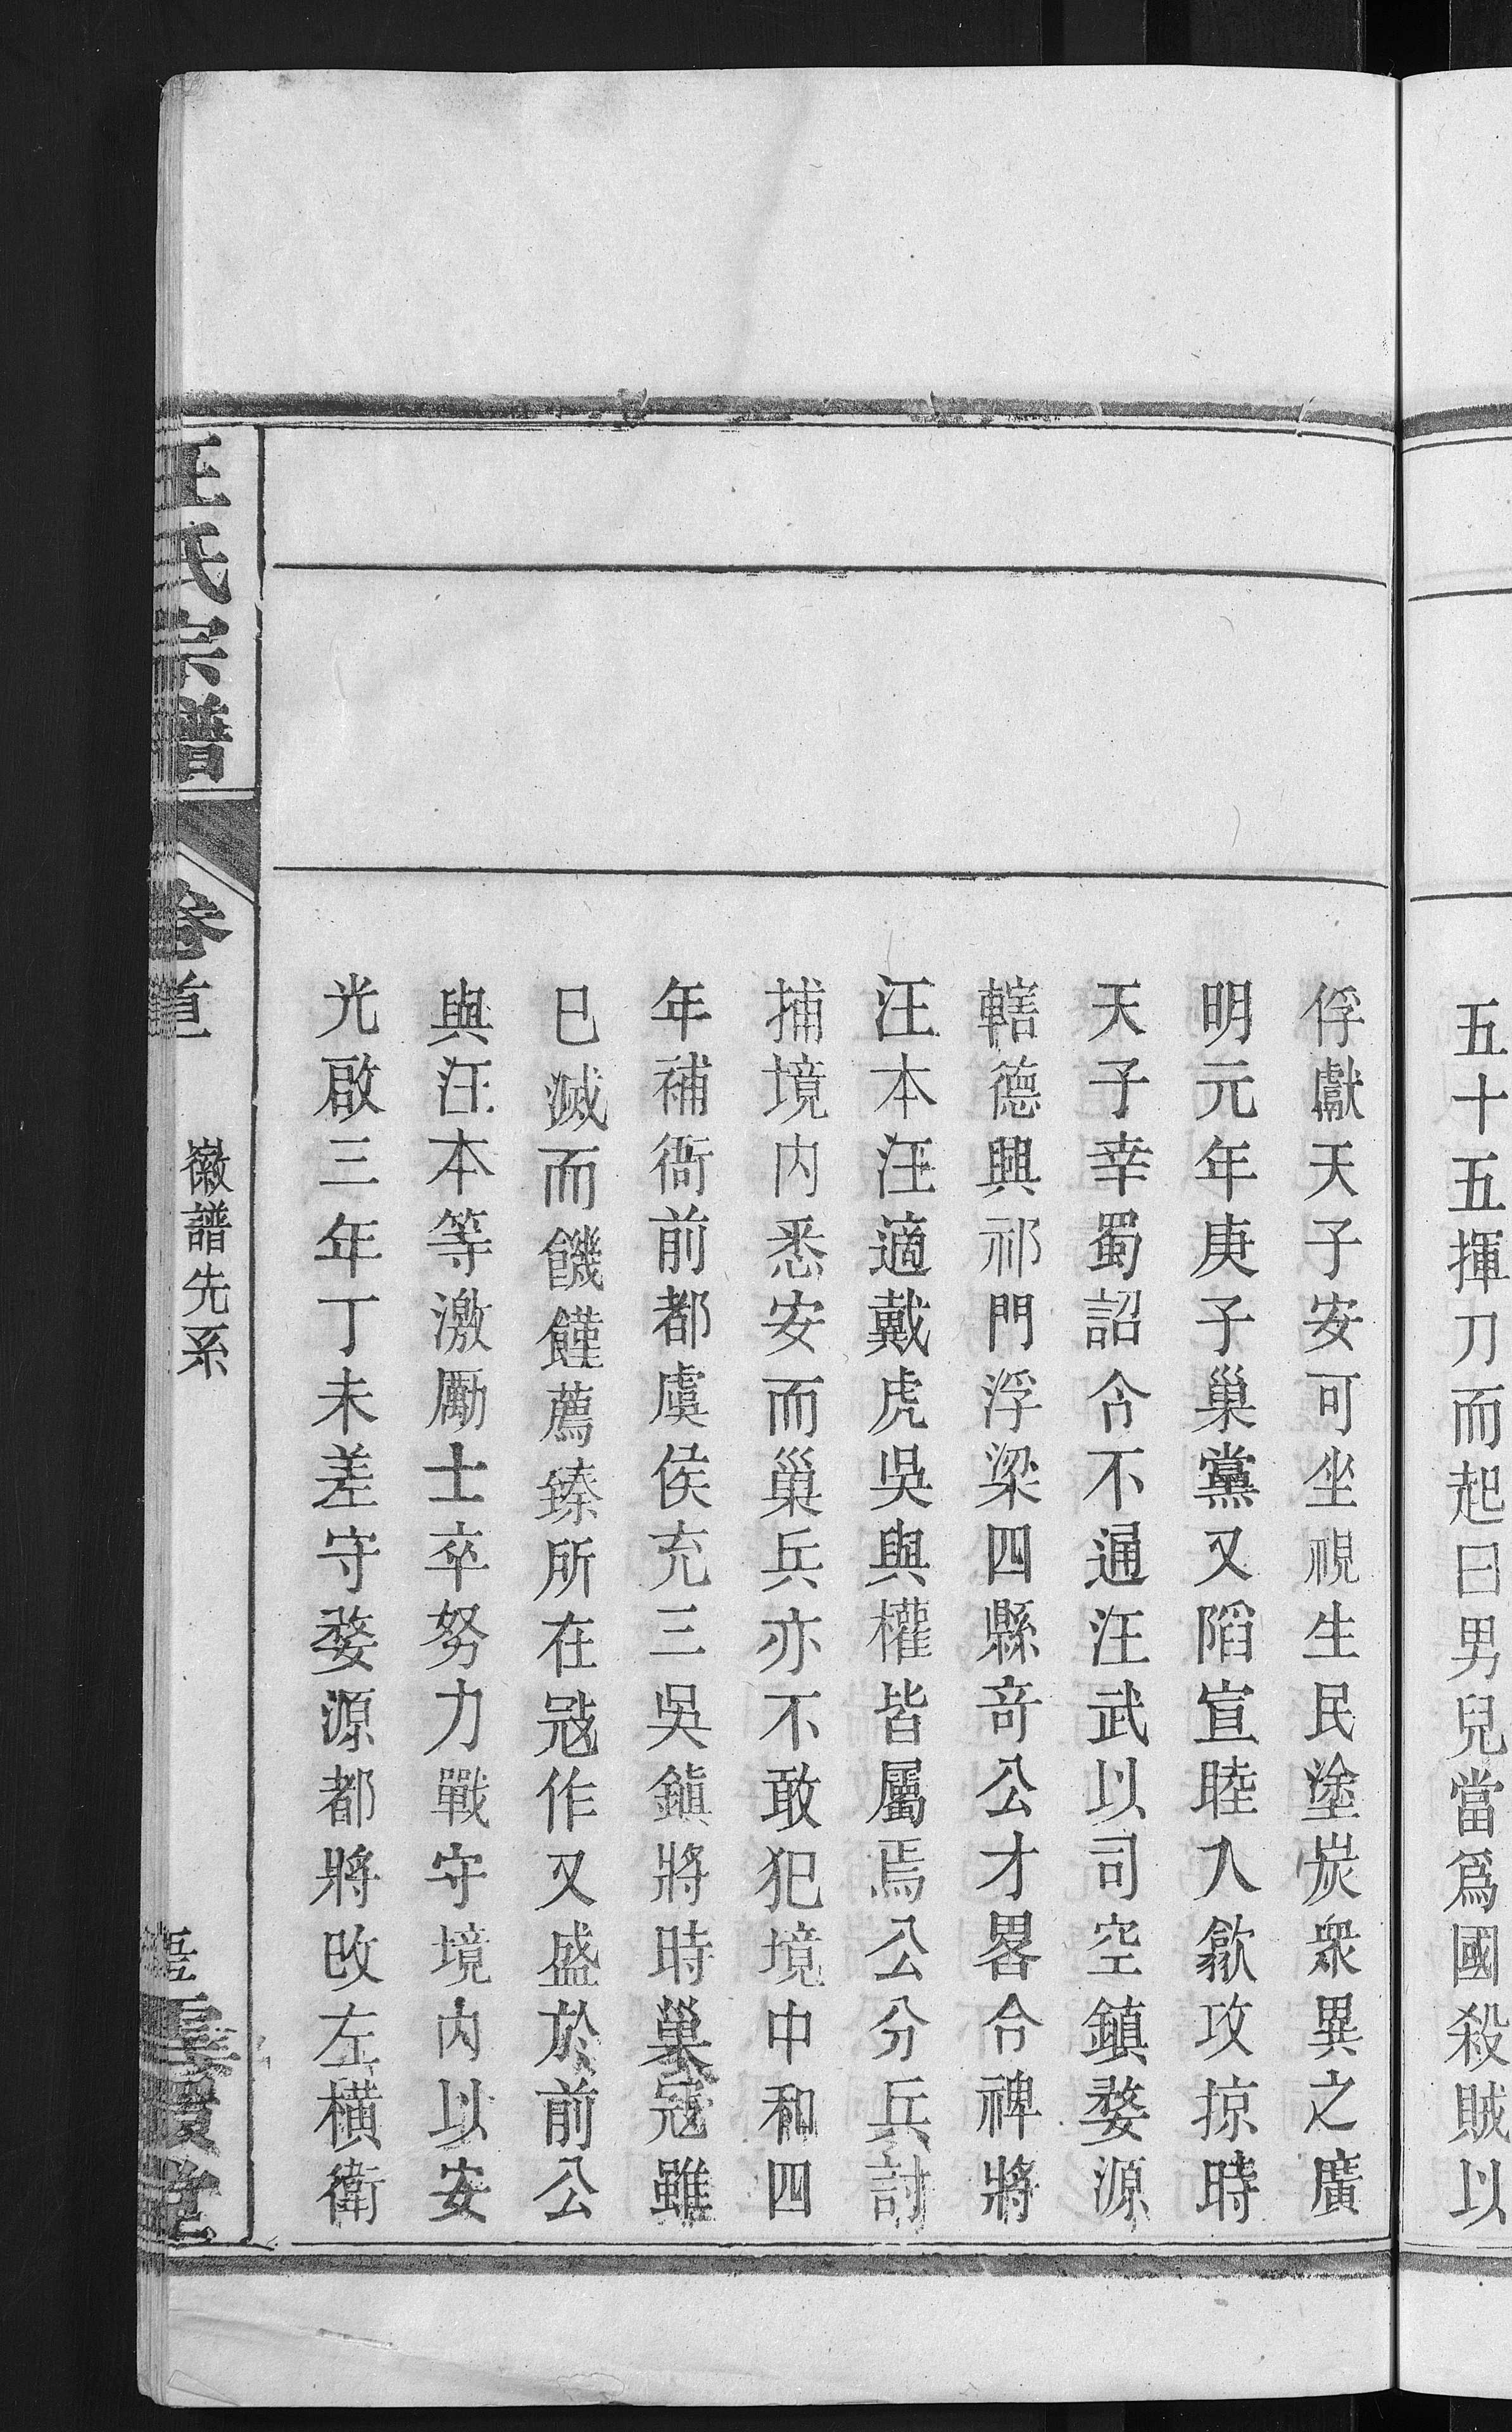 五十五揮刀而起曰男兒當爲國殺賊以
俘獻天子安可坐視生民塗炭衆異之廣
明元年庚子巢黨又陷宣睦入歙攻掠時
天子幸蜀詔令不通汪武以司空鎮婺源
轄德興祁門浮梁四縣奇公才畧令裨將
汪本汪適戴虎吳與權皆屬焉公分兵討
捕境內悉安而巢兵亦不敢犯境中和四
年補衙前都虞侯充三吳鎮將時巢寇雖
巳滅而饑饉薦臻所在寇作又盛於前公
與汪本等激勵士卒努力戰守境內以安
光啟三年丁未差守婺源都將改左橫衛
王氏宗譜
卷首
徽譜先系